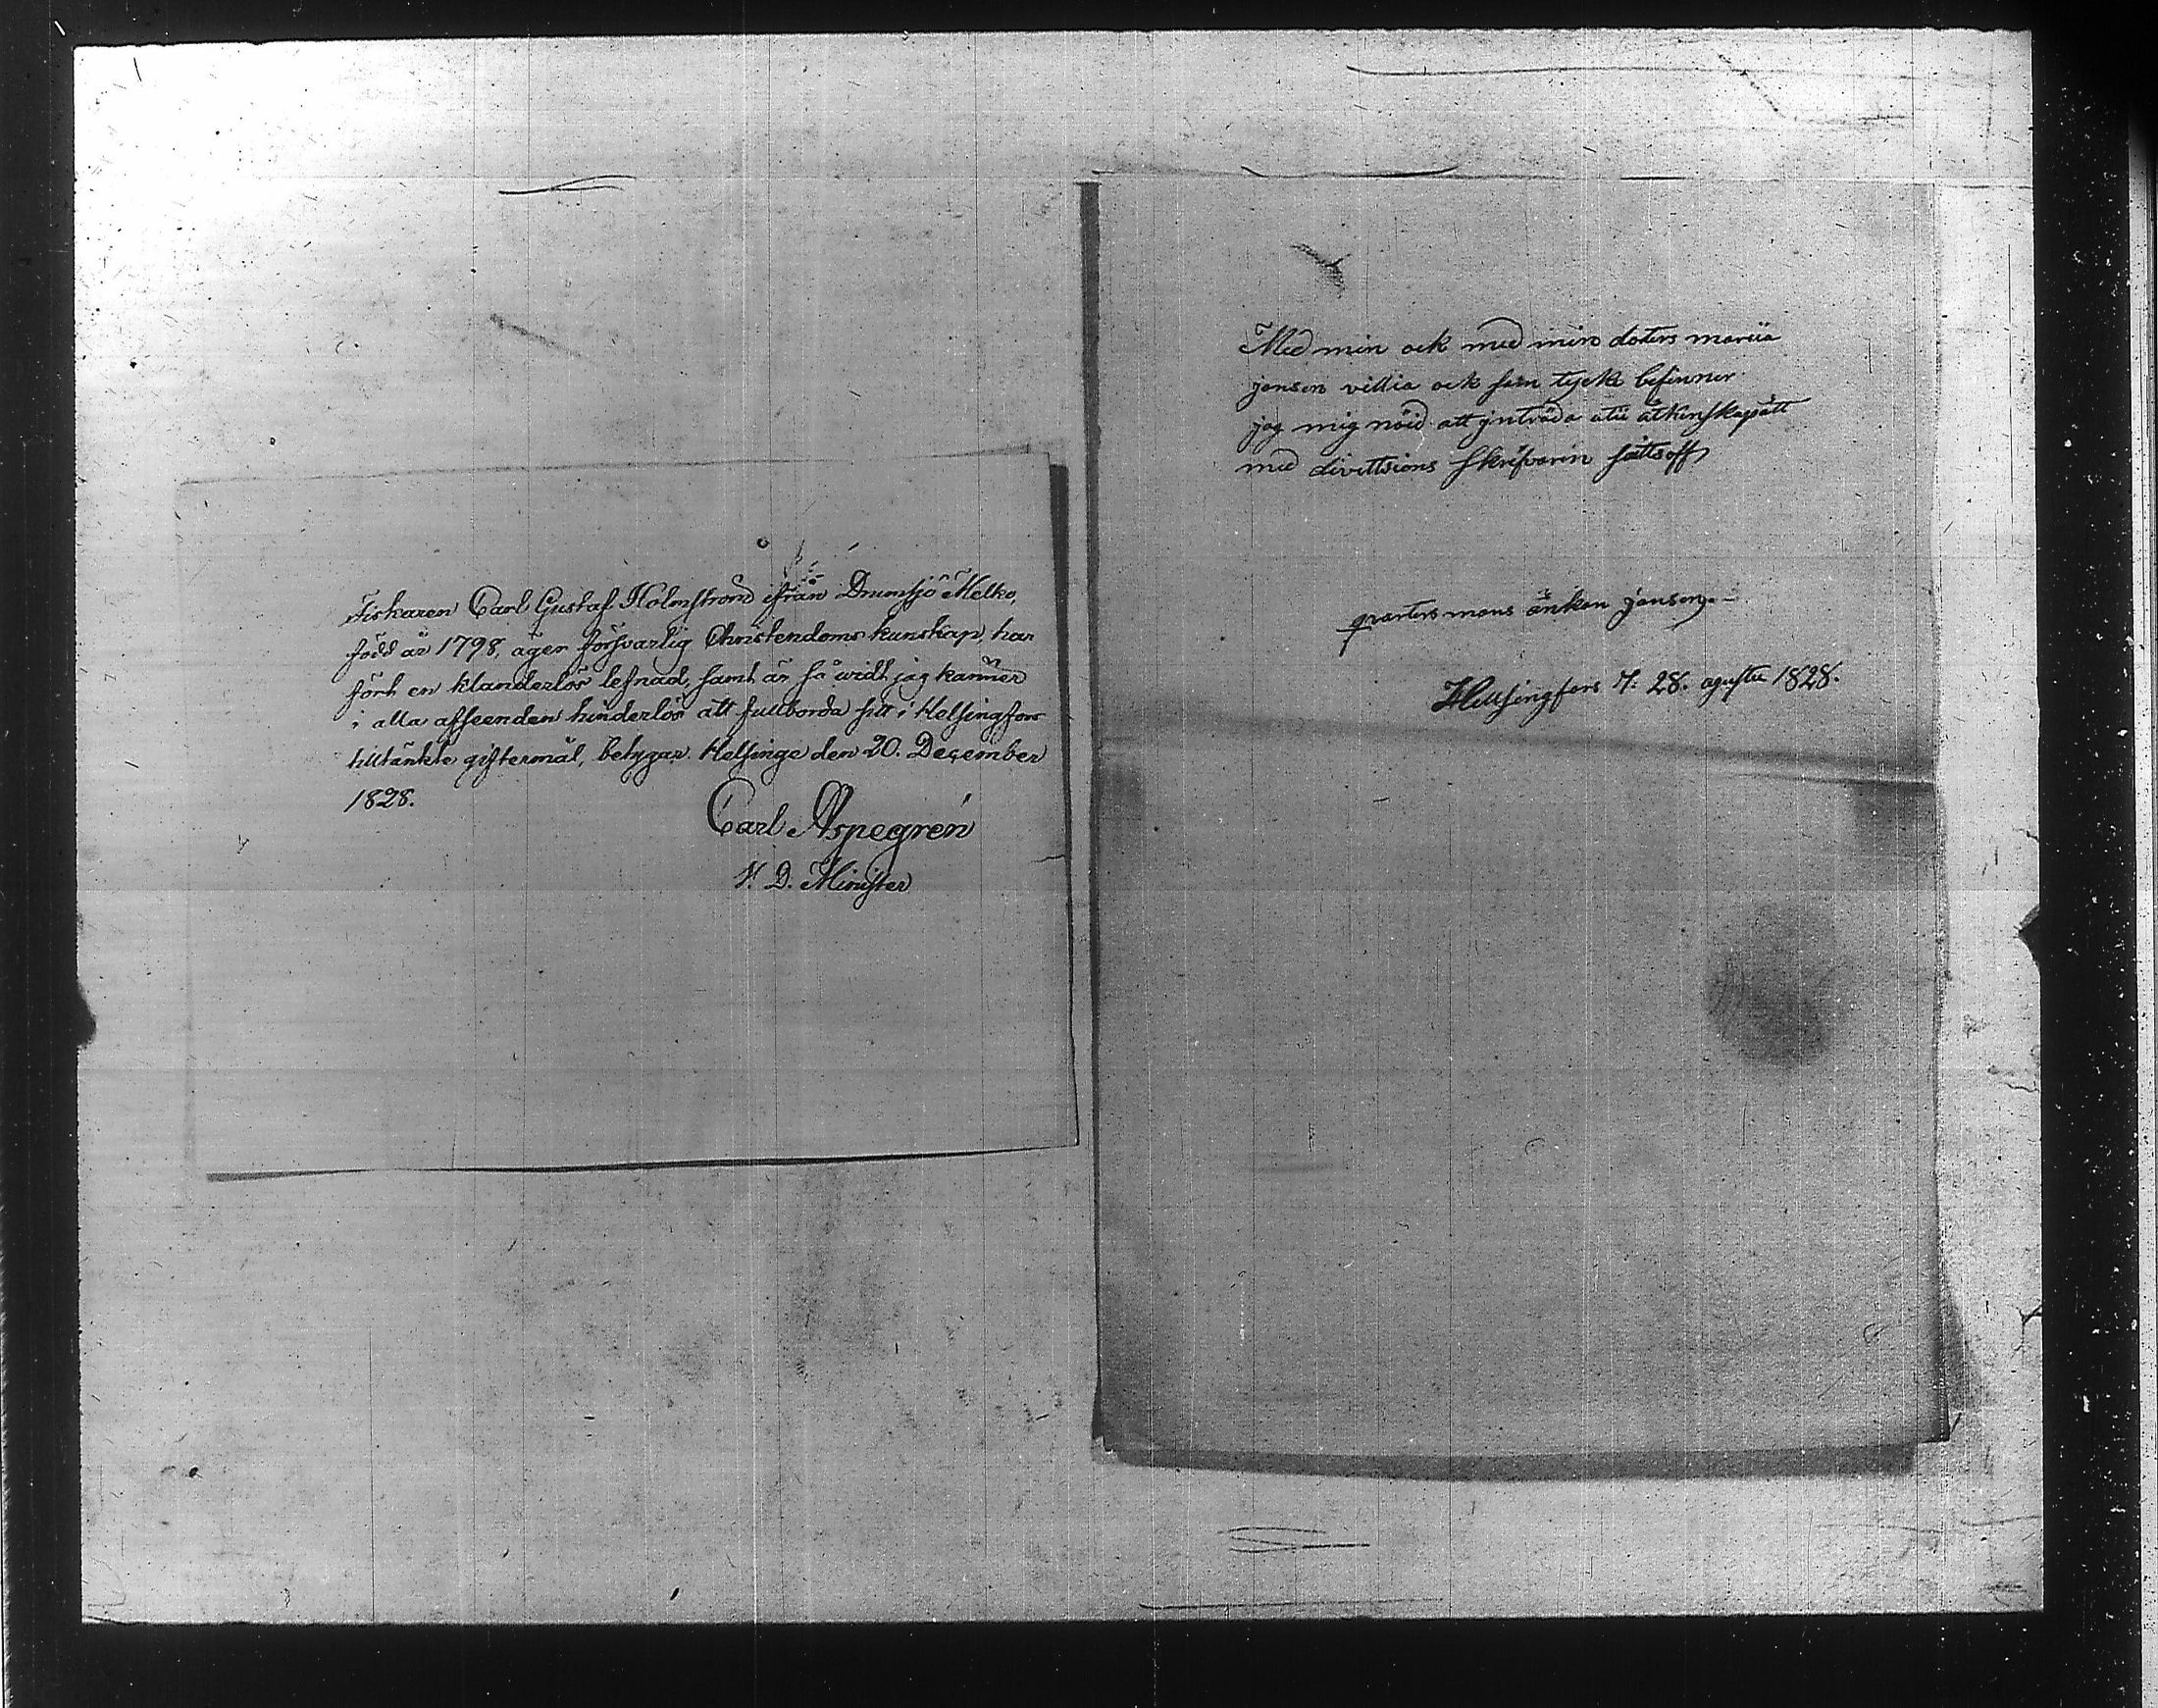 Fiskaren Carl Gustaf Holmström ifrån Drumsjö Melkö,
född år 1798, äger försvarlig Christendoms kunskap, har
fört en klanderlös lefnad, samt är så widt jag känner
i alla afseenden hinderlös att fullborda sitt i Helsingfors
tilltänkte giftermål, betygar. Helsinge den 20. December
1828.
Carl Aspegrén
V. D. Minister
Med min ock med min doters mariia
jonsen villia ock sam tyck befinner
jag mig nöid att jnträda
med divittsions skrifvarin
qvarters mans änkan jonsen
Hellsingfors 28. agustu 1828.